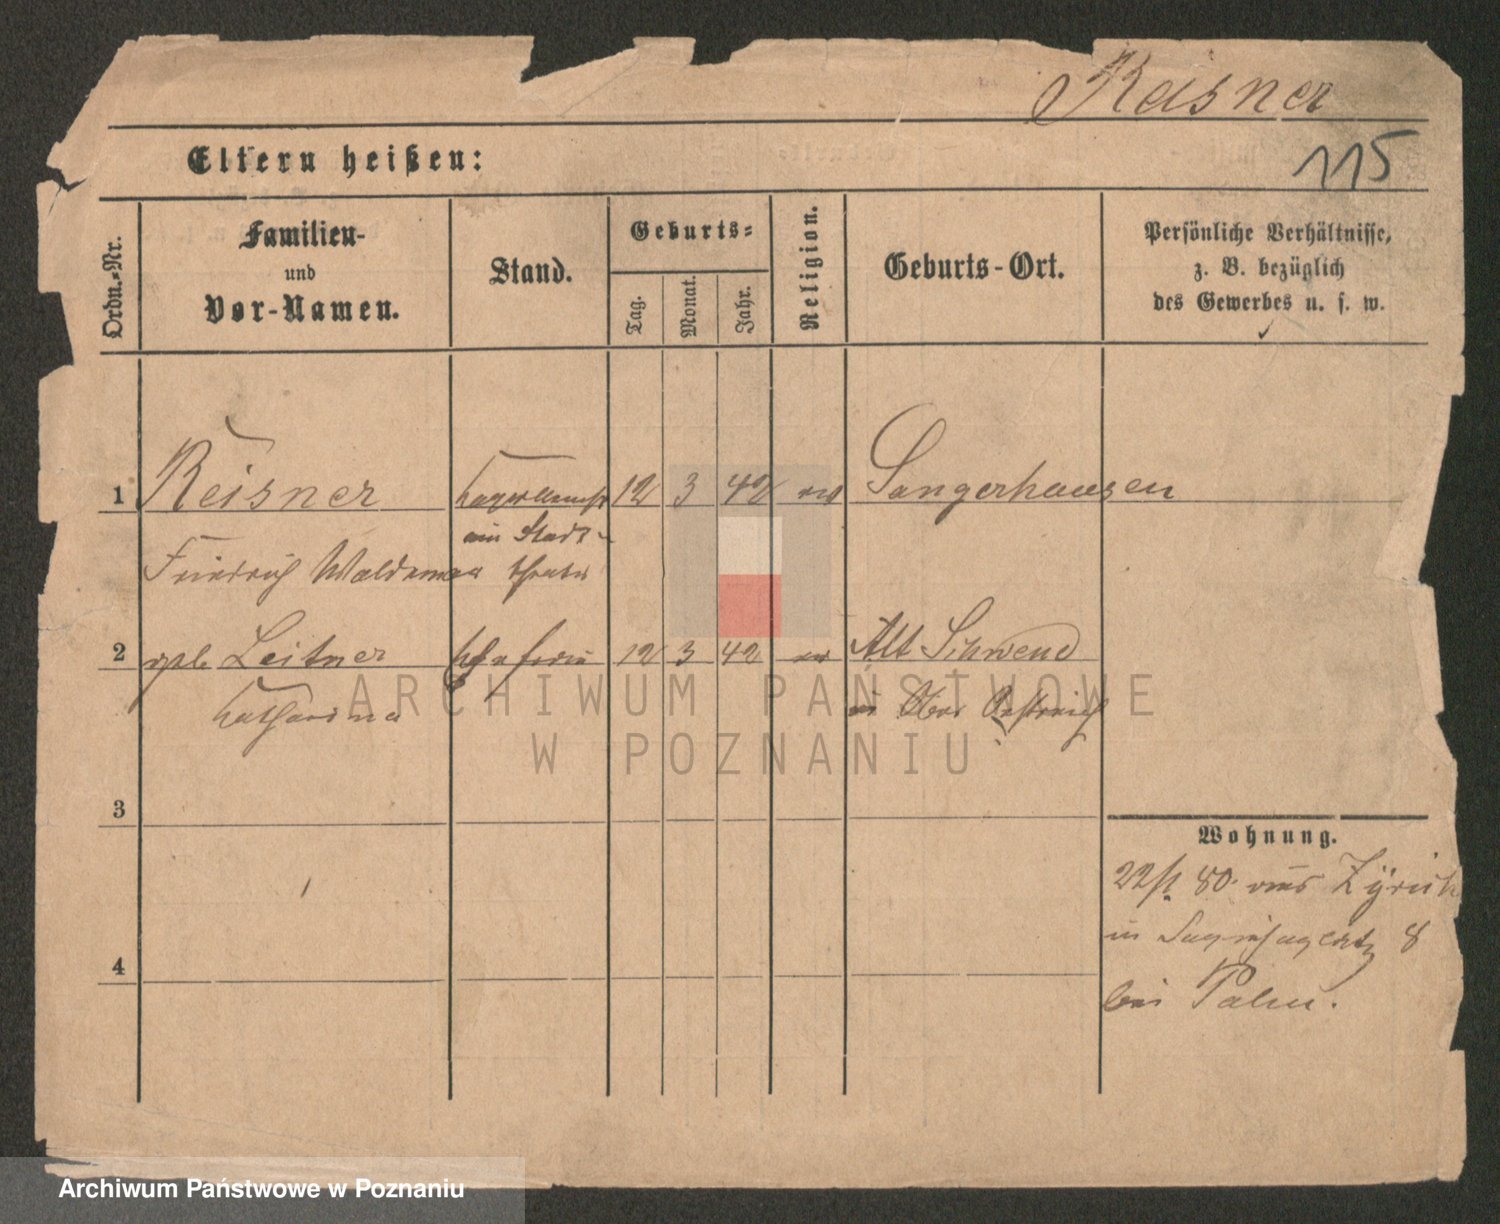 Reisner
115
Eltern heißen:
Ordn.-Nr.
Familien-
und
Vor-Namen.
Stand.
Geburts-
Tag.
Monat.
Jahr.
Religion.
Geburts-Ort.
Persönliche Verhältnisse,
z. B. bezüglich
des Gewerbes u. s. w.
1 Reisner 12 3 42 ev Sangerhausen
am Stadt-
Friedrich Waldemar theater
2 geb. Leitner Ehefrau 12 3 42 ev Alt Schwend
Katharina in Ober Oestreich
ARCHIWUM PAŃSTWOWE
W POZNANIU
3
Wohnung.
22/ 80 aus Zÿrich
in 8
4
bei Palm.
Archiwum Państwowe w Poznaniu